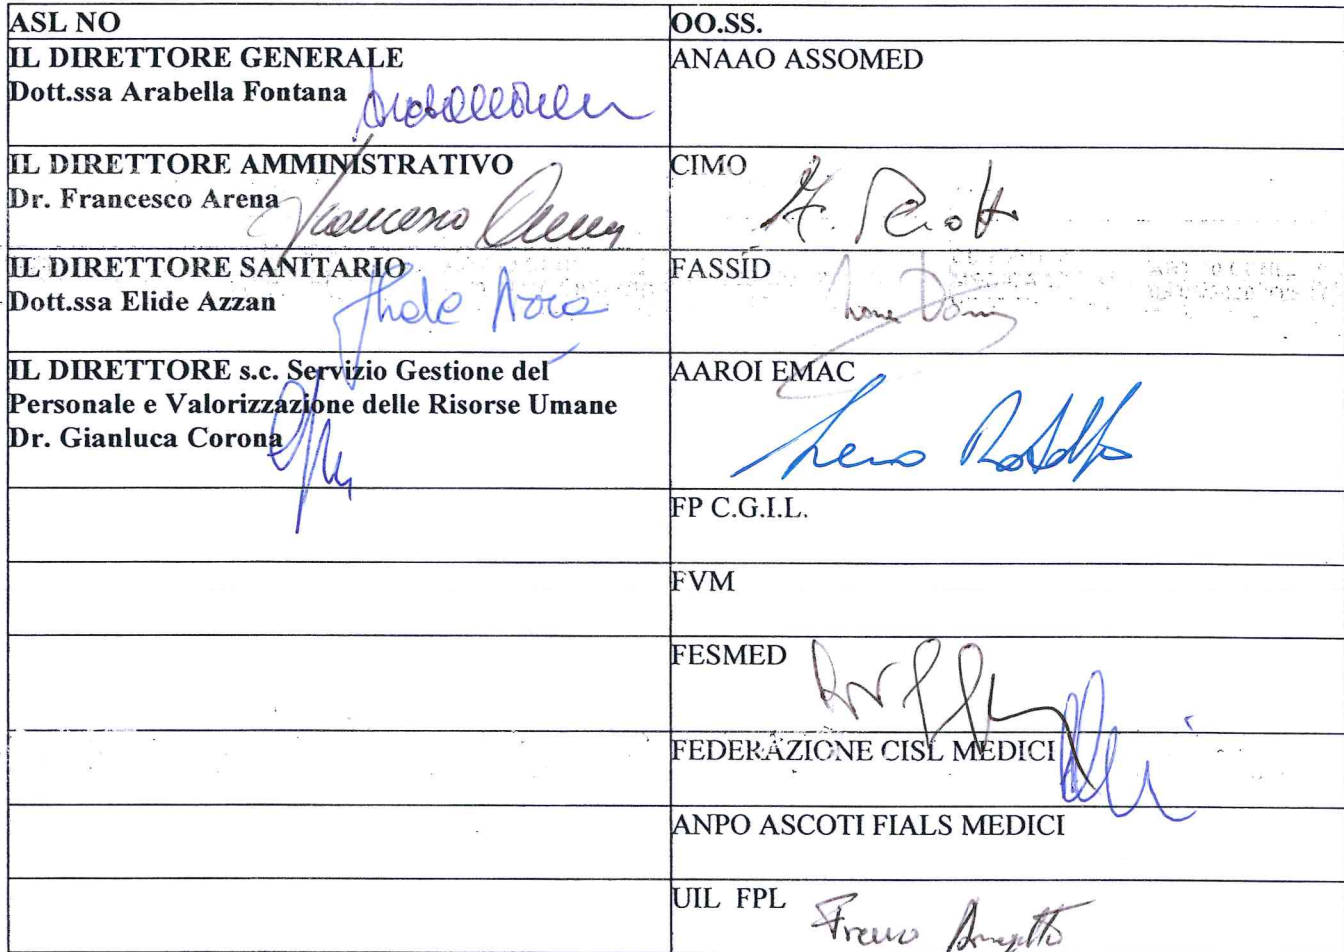 ASL NO
OO.SS.
IL DIRETTORE GENERALE
Dott.ssa Arabella Fontana
ANAAO ASSOMED
IL DIRETTORE AMMINISTRATIVO
Dr. Francesco Arena
Francesco Arena
CIMO
IL DIRETTORE SANITARIO
Dott.ssa Elide Azzan
FASSID
IL DIRETTORE s.c. Servizio Gestione del
Personale e Valorizzazione delle Risorse Umane
Dr. Gianluca Corona
AAROI EMAC
FP C.G.I.L.
FVM
FESMED
FEDERAZIONE CISL MEDICI
ANPO ASCOTI FIALS MEDICI
UIL FPL